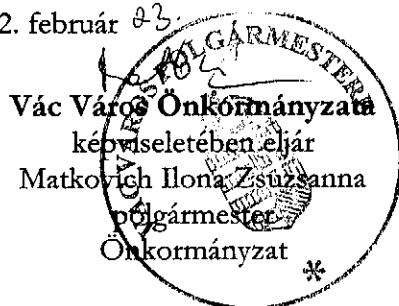 2. február 23.
Vác Város Önkormányzata
képviseletében eljár
Matkovich Ilona Zsuzsanna
polgármester
Önkormányzat
VÁC VÁROS POLGÁRMESTERE
*